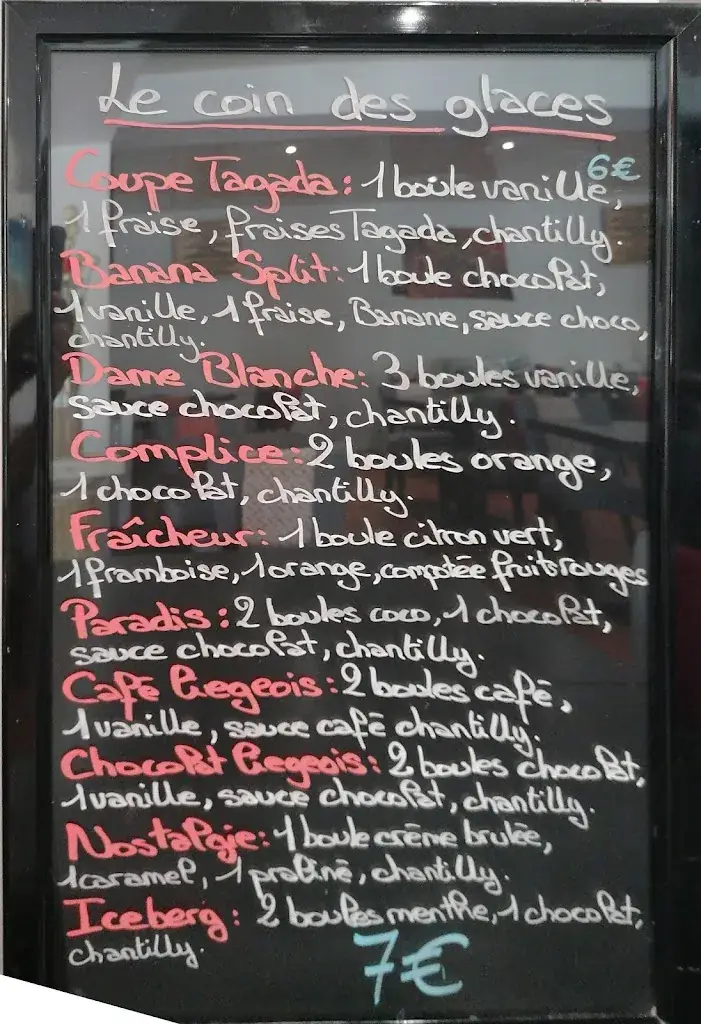 Le coin des glaces
6€
Coupe Tagada: 1 boule vanille,
1 fraise, fraises Tagada, chantilly.
Banana Split: 1 boule chocolat,
1 vanille, 1 fraise, Banane, sauce choco,
chantilly.
Dame Blanche: 3 boules vanille,
sauce chocolat, chantilly.
Complice: 2 boules orange,
1 chocolat, chantilly.
Fraîcheur: 1 boule citron vert,
1 framboise, 1 orange, compotée fruits rouges
Paradis: 2 boules coco, 1 chocolat,
sauce chocolat, chantilly.
Café Liegeois: 2 boules café,
1 vanille, sauce café chantilly.
Chocolat Liegeois: 2 boules chocolat,
1 vanille, sauce chocolat, chantilly.
Nostalgie: 1 boule crème brulée,
1 caramel, 1 praliné, chantilly.
Iceberg: 2 boules menthe, 1 chocolat,
chantilly.
7€